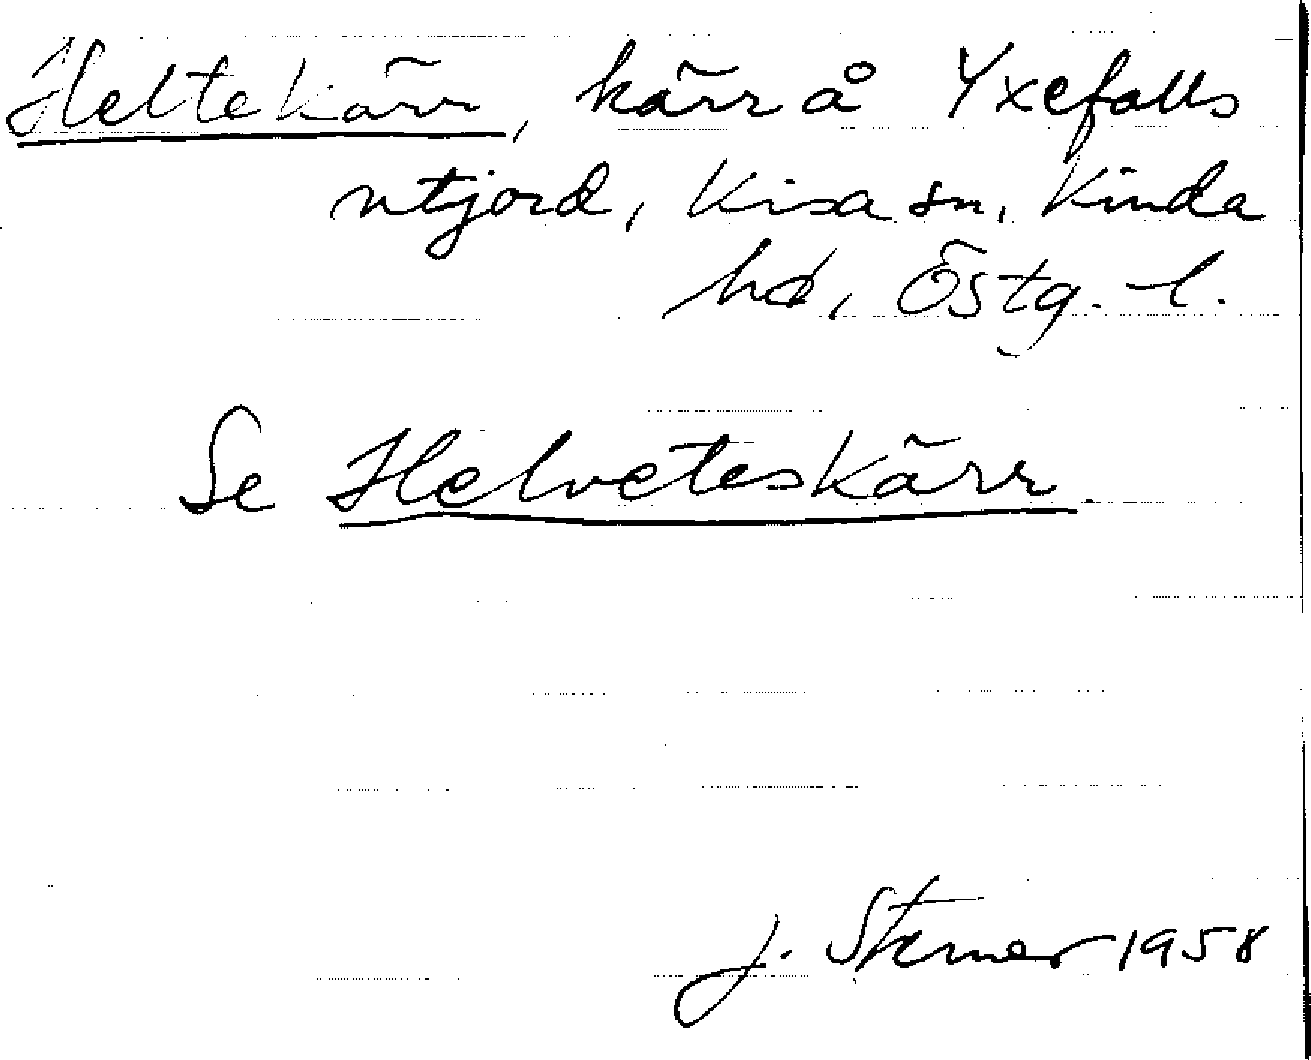 Heltekärr, kärr å Yxefalls
utjord, Kisa sn, Kinda
hd, Östg. l.
Se Helveteskärr.
J. 1958